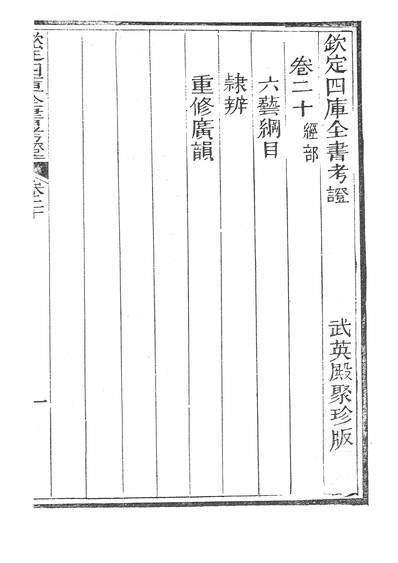 欽定四庫全書考證 武英殿聚珍版
卷二十 經部
六藝綱目
隸辨
重修廣韻
欽定四庫全書考證 卷二十 一